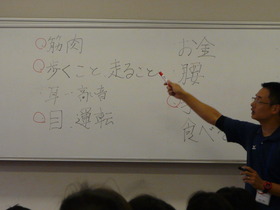 筋肉
歩くこと、走ること
耳…高音
目…運転
お金
腰
食べ